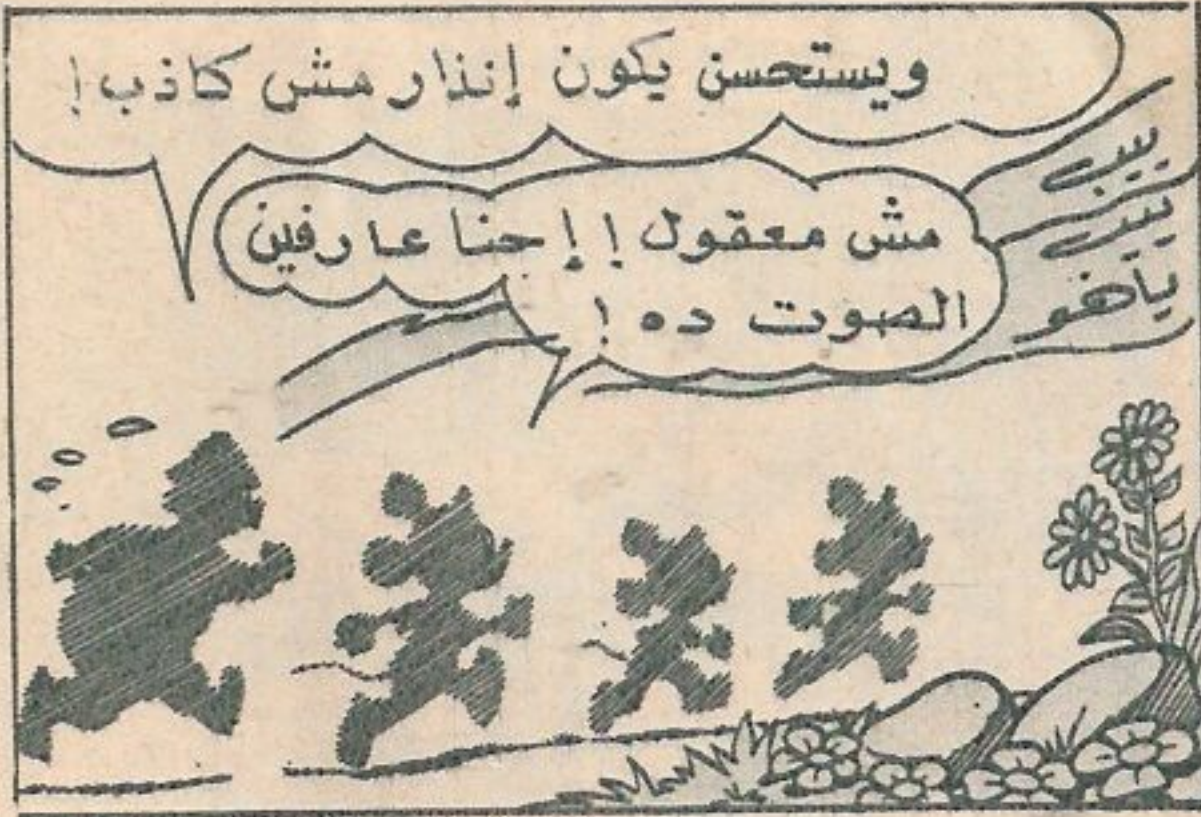 ويستحسن يكون إنذار مش كاذب!
مش معقول! إحنا عارفين
الصوت ده!
بيب
بيب
ياهو